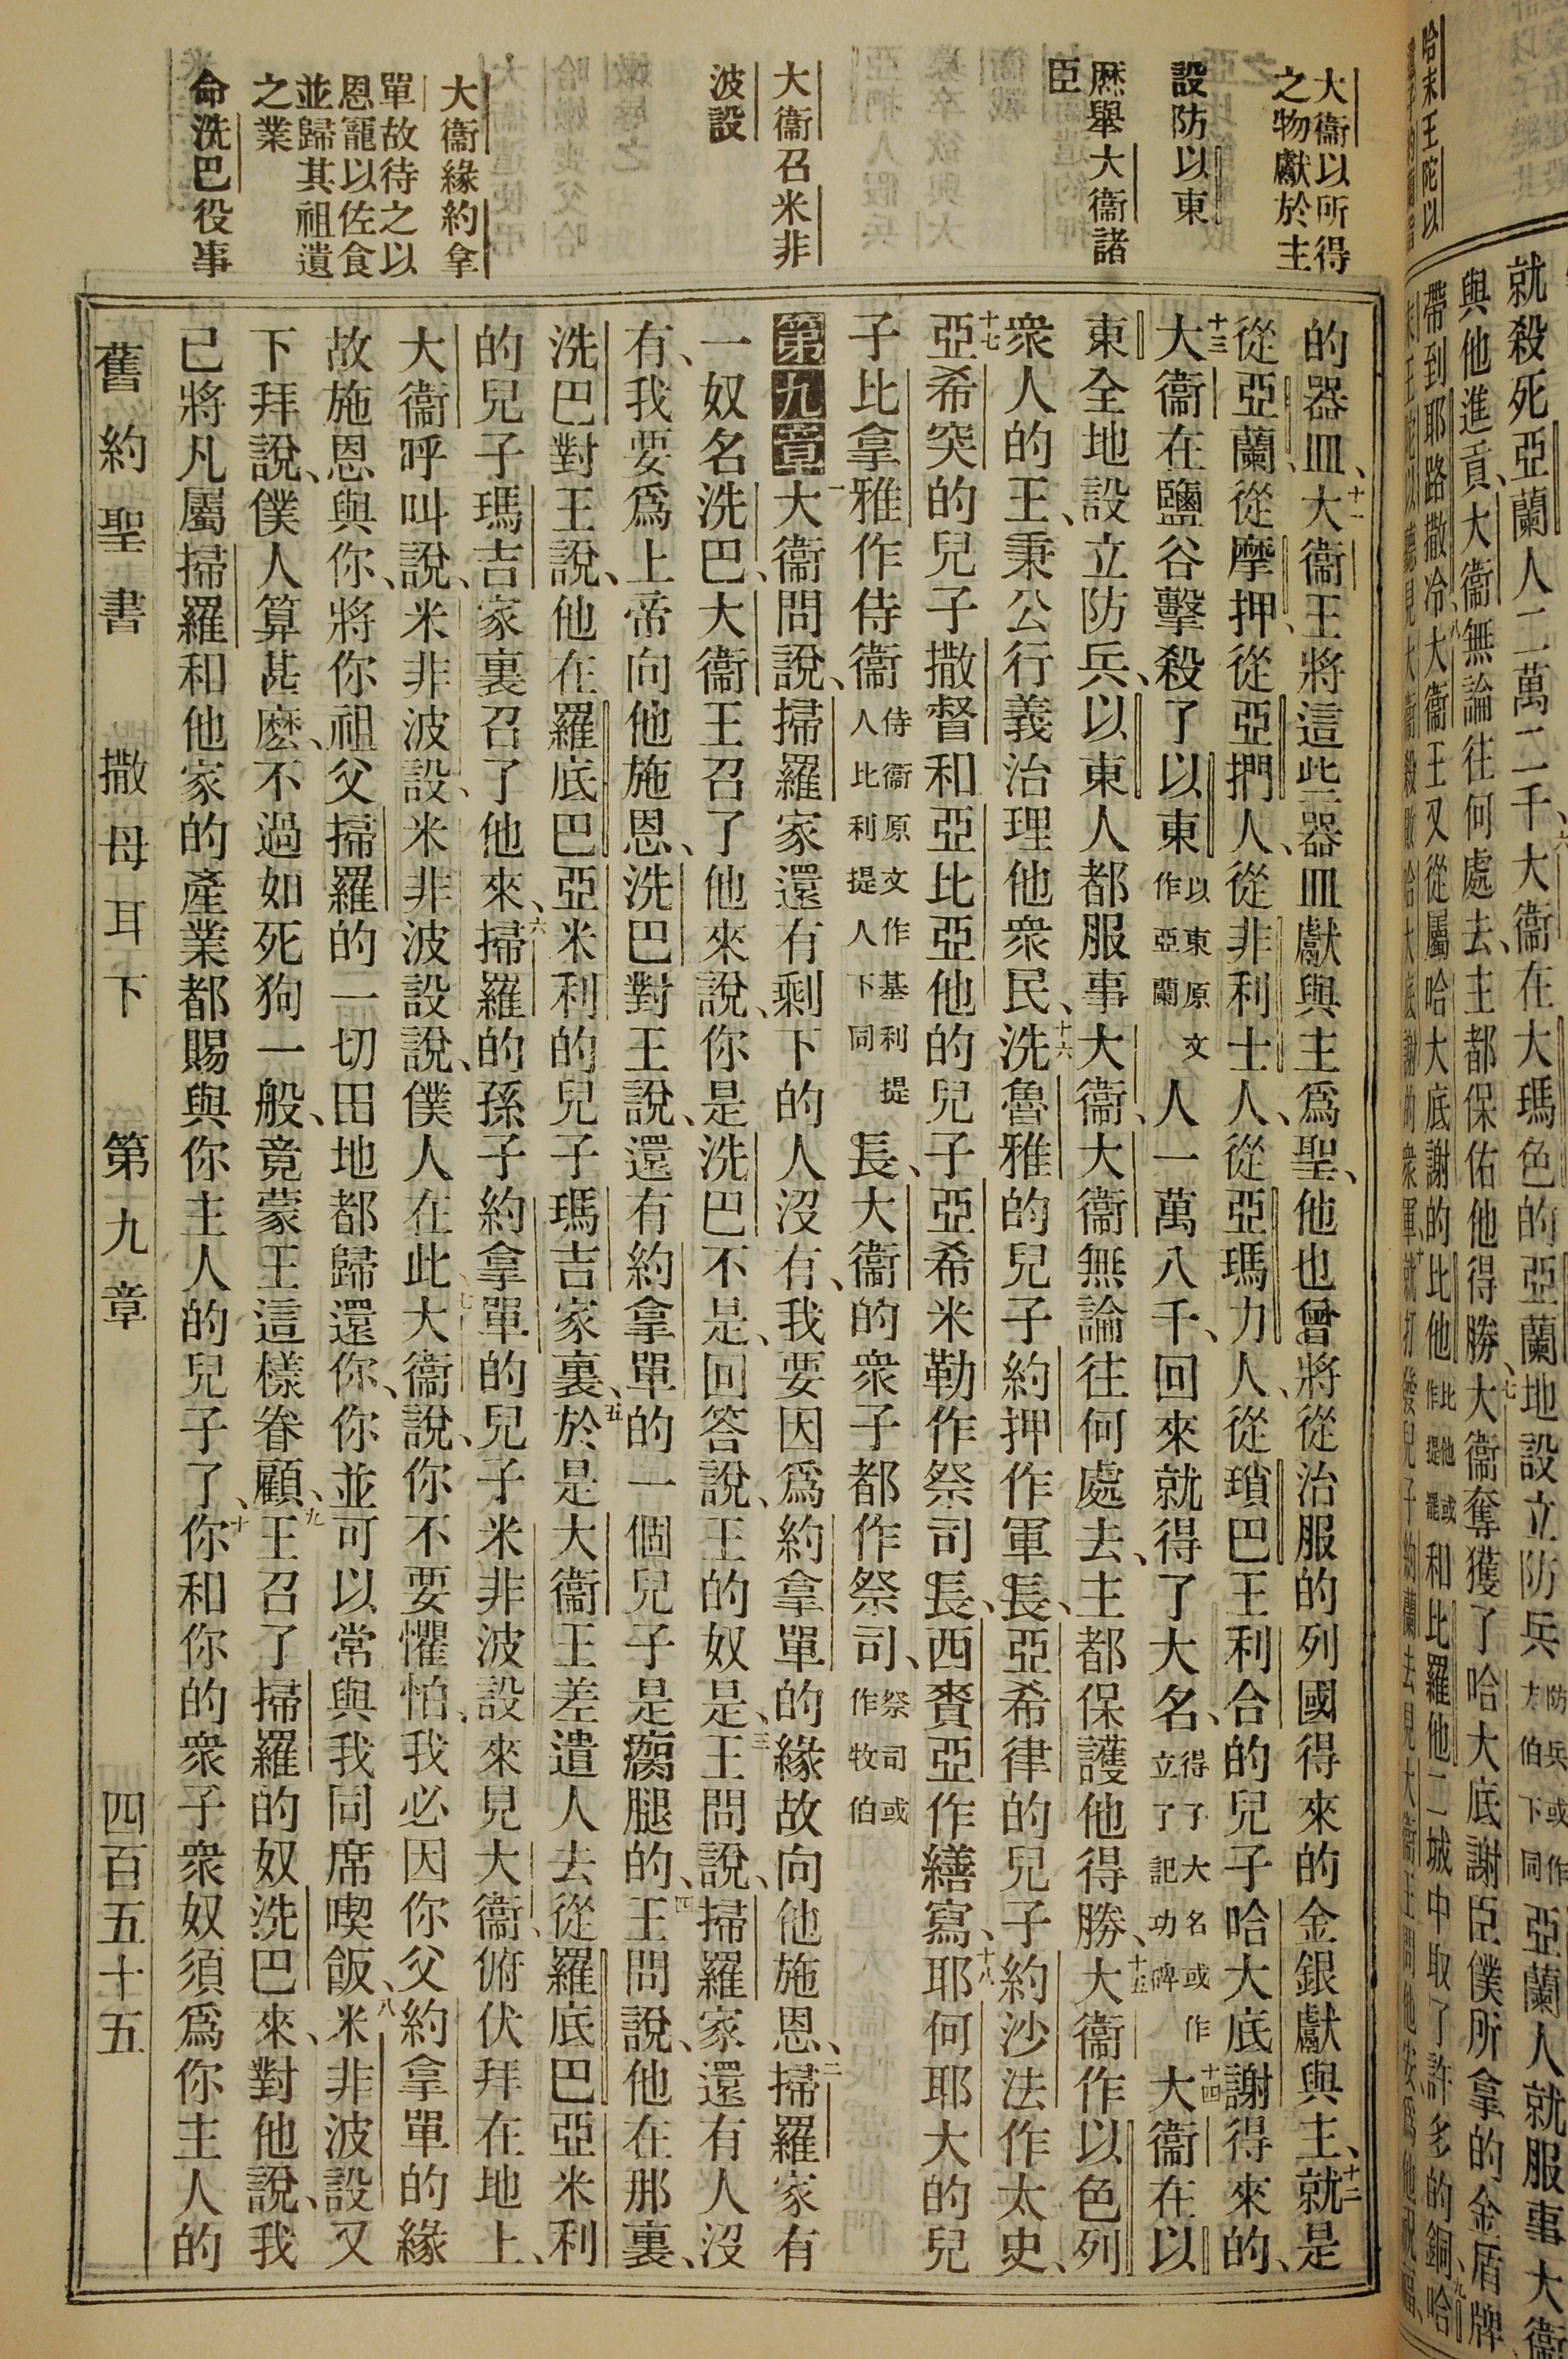 大衞以所得
之物獻於主
設防以東
厯舉大衞諸
臣
大衞召米非
波設
大衞緣約拿
單故待之以
恩寵以佐食
並歸其祖遺
之業
命洗巴役事
的器皿、十一大衞王將這些器皿獻與主爲聖、他也曾將從治服的列國得來的金銀獻與主、十二就是
從亞蘭、從摩押、從亞捫人、從非利士人、從亞瑪力人、從瑣巴王利合的兒子哈大底謝得來的、
十三大衞在鹽谷擊殺了以東以東原文作亞蘭人一萬八千、回來就得了大名、得了大名或作立了記功碑十四大衞在以
東全地設立防兵、以東人都服事大衞、大衞無論往何處去、主都保護他得勝、十五大衞作以色列
衆人的王、秉公行義治理他衆民、十六洗魯雅的兒子約押作軍長、亞希律的兒子約沙法作太史、
十七亞希突的兒子撒督和亞比亞他的兒子亞希米勒作祭司長、西賚亞作繕寫、十八耶何耶大的兒
子比拿雅作侍衞侍衞原文作基利提人比利提人下同長、大衞的衆子都作祭司、祭司或作牧伯
第九章一大衞問說、掃羅家還有剩下的人沒有、我要因爲約拿單的緣故向他施恩、二掃羅家有
一奴名洗巴、大衞王召了他來說、你是洗巴不是、回答說、王的奴是、三王問說、掃羅家還有人沒
有、我要爲上帝向他施恩、洗巴對王說、還有約拿單的一個兒子是瘸腿的、四王問說、他在那裏、
洗巴對王說、他在羅底巴亞米利的兒子瑪吉家裏、五於是大衞王差遣人去從羅底巴亞米利
的兒子瑪吉家裏召了他來、六掃羅的孫子約拿單的兒子米非波設來見大衞、俯伏拜在地上、
大衞呼叫說、米非波設、米非波設說、僕人在此、七大衞說、你不要懼怕、我必因你父約拿單的緣
故施恩與你、將你祖父掃羅的一切田地都歸還你、你並可以常與我同席喫飯、八米非波設又
下拜說、僕人算甚麽、不過如死狗一般、竟蒙王這樣眷顧、九王召了掃羅的奴洗巴來、對他說、我
已將凡屬掃羅和他家的產業都賜與你主人的兒子了、十你和你的衆子衆奴須爲你主人的
舊約聖書 撒母耳下 第九章 四百五十五
哈末王陀以
就殺死亞蘭人二萬二千、六大衞在大瑪色的亞蘭地設立防兵防兵或作方伯下同亞蘭人就服事大衞
與他進貢、大衞無論往何處去、主都保佑他得勝、七大衞奪獲了哈大底謝臣僕所拿的金盾牌
帶到耶路撒冷、八大衞王又從屬哈大底謝的比他比他或作提罷和比羅他二城中取了許多的銅、九哈